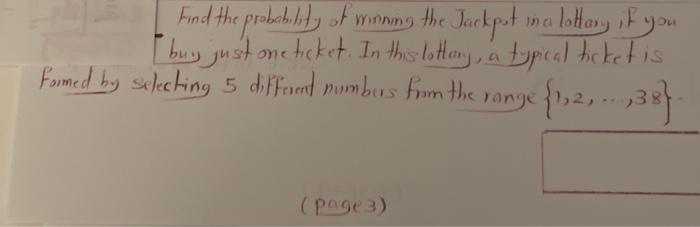 Find the probability of winning the Jackpot in a lottary if you
buy just one ticket. In this lottary, a typical ticket is
Formed by selecting 5 different numbers from the range {1,2, ...,38}.
(page3)